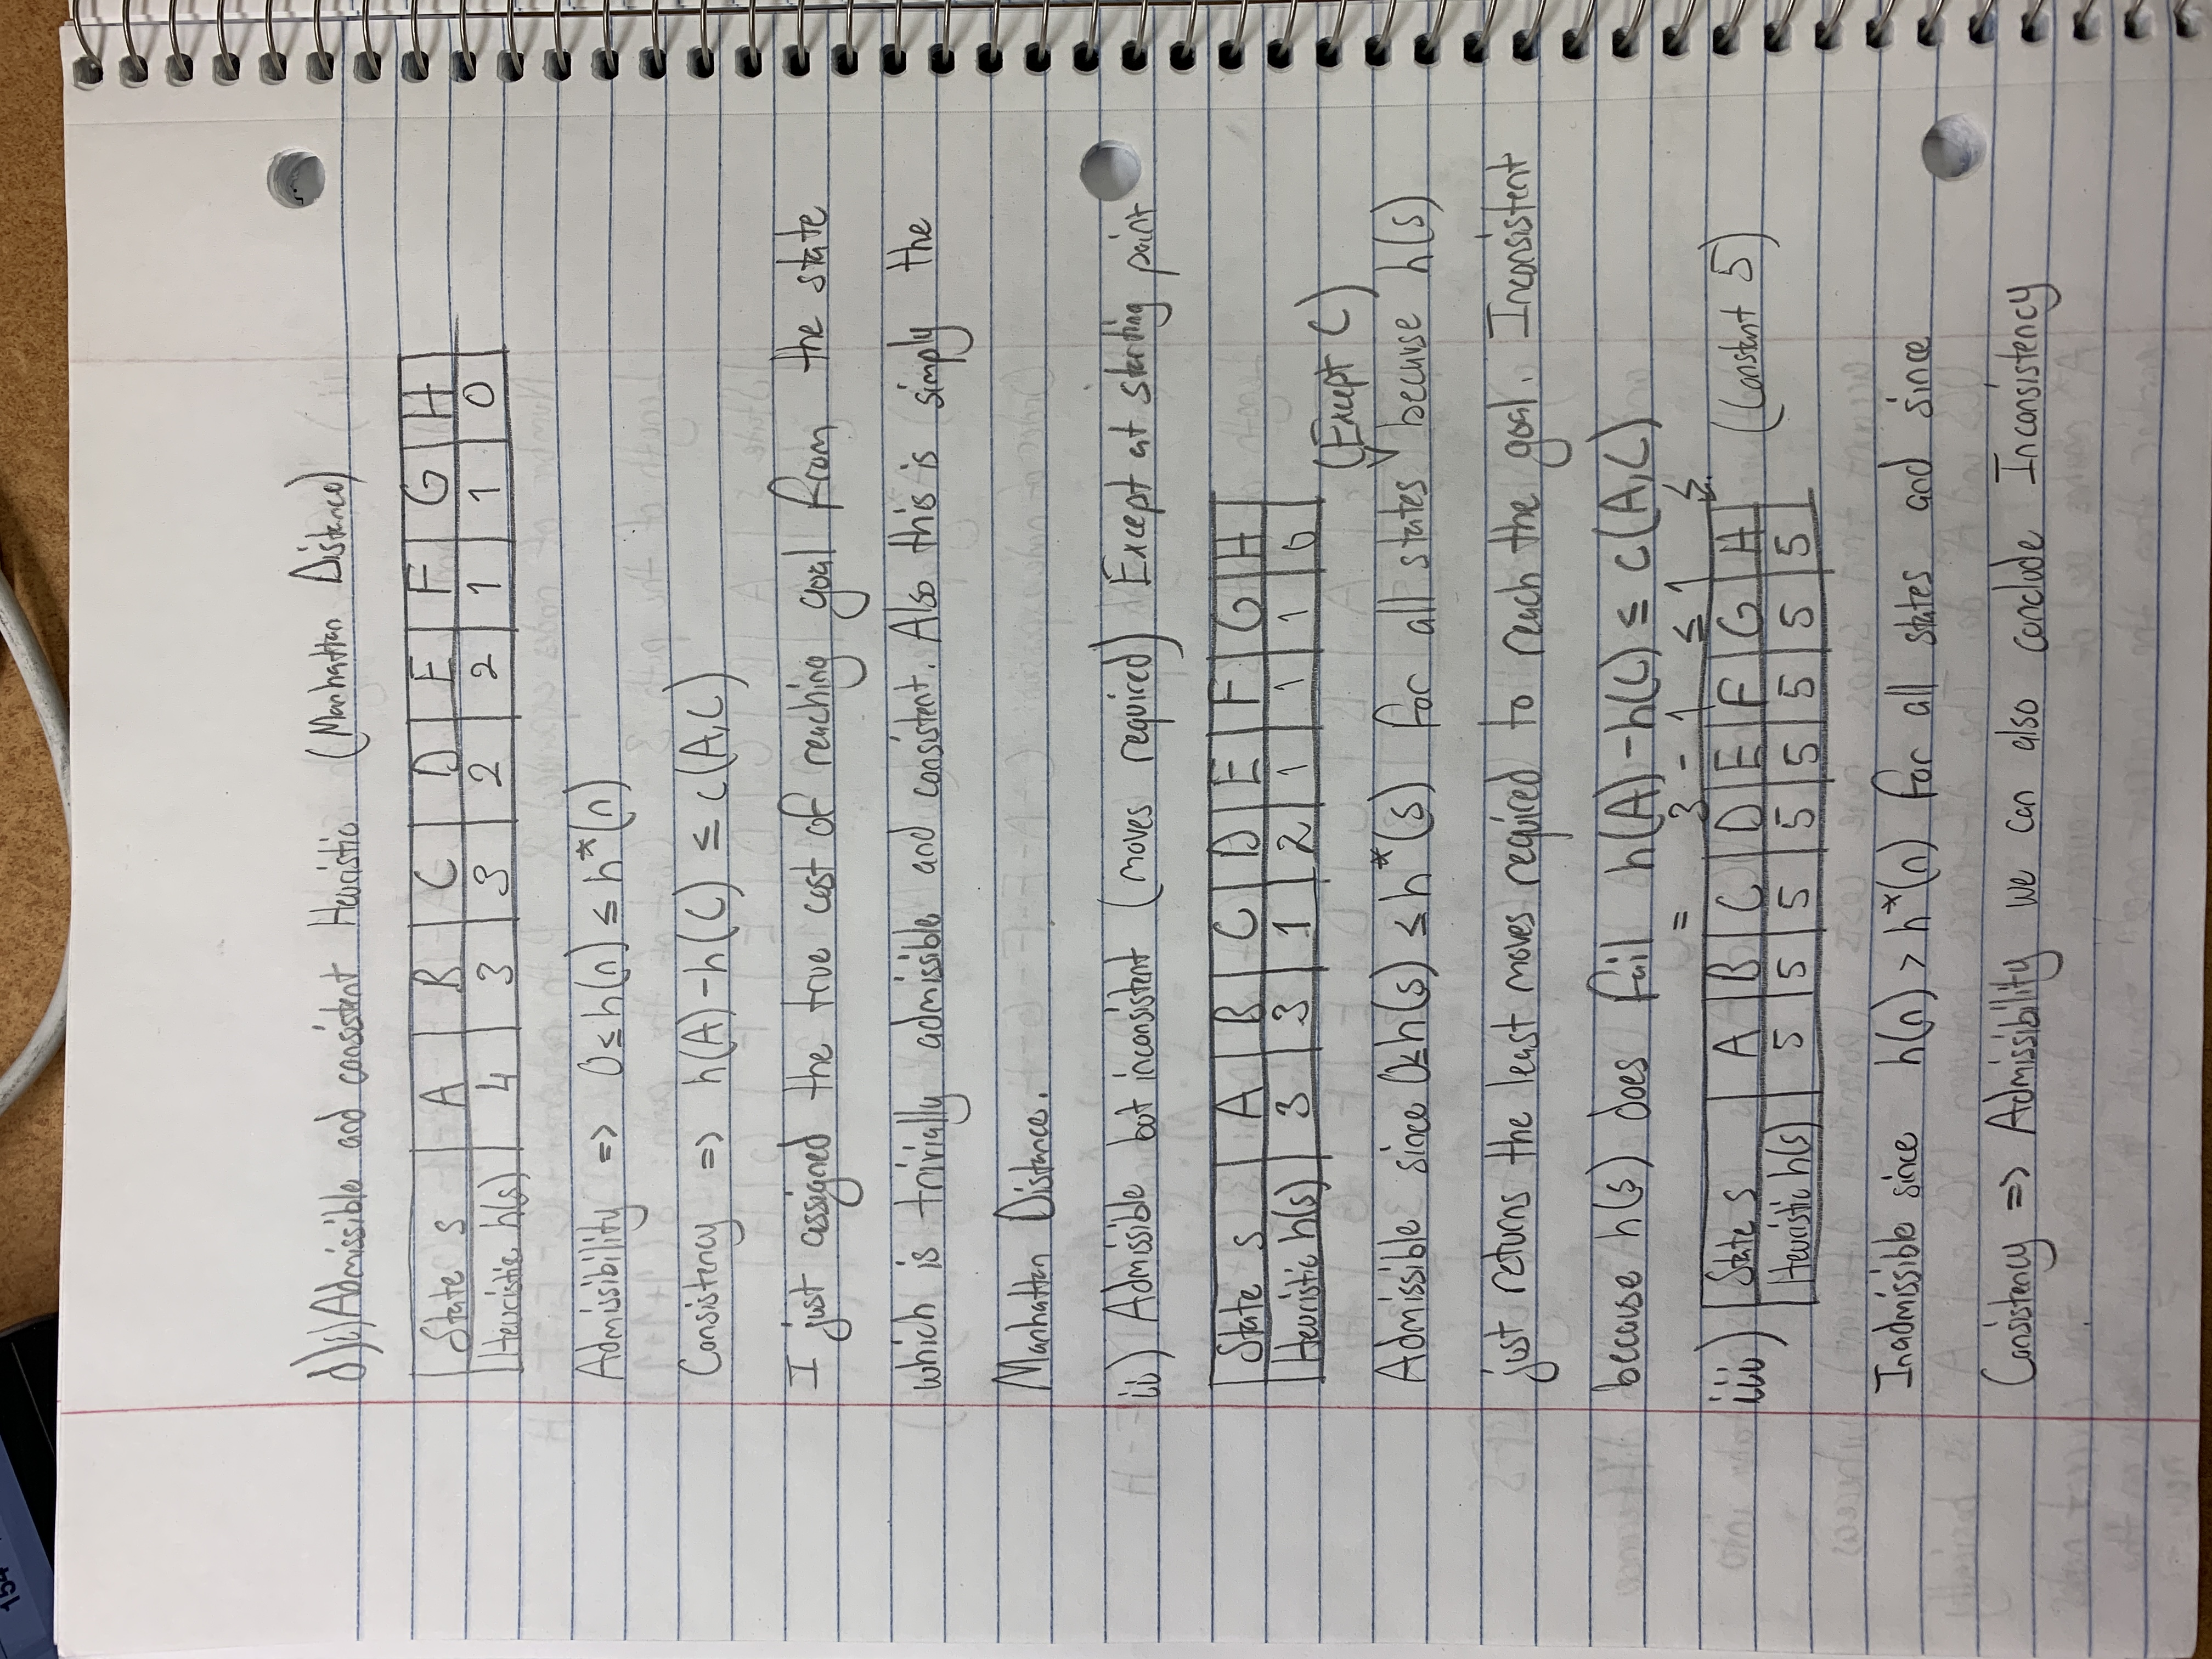 154
d)i) Admissible and consistent Heuristic (Manhattan Distance)
State s A B C D E F G H
Heuristic h(s) 4 3 3 2 2 1 1 0
Admissibility => 0≤h(n) ≤ h*(n)
Consistency => h(A)-h(C) ≤ c(A,C)
I just assigned the true cost of reaching goal from the state
which is trivially admissible and consistent. Also this is simply the
Manhattan Distance.
ii) Admissible but inconsistent (moves required) Except at starting point
State s A B C D E F G H
Heuristic h(s) 3 3 1 2 1 1 1 0
(Except C)
Admissible since 0≤h(s) ≤h*(s) for all states because h(s)
just returns the least moves required to reach the goal. Inconsistent
because h(s) does fail h(A)-h(C) ≤ c(A,C)
= 3 - 1 ≤ 1
iii) State s A B C D E F G H (Constant 5)
Heuristic h(s) 5 5 5 5 5 5 5 5
Inadmissible since h(n) > h*(n) for all states and since
Consistency => Admissibility we can also conclude Inconsistency